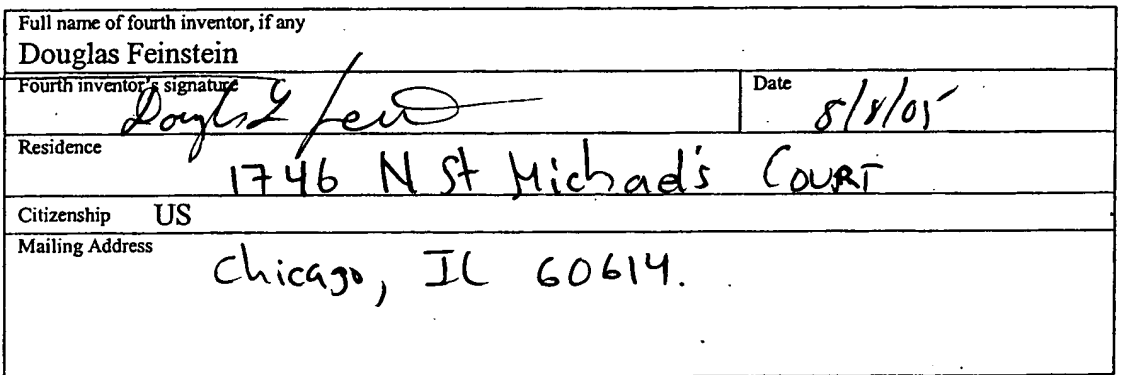 Full name of fourth inventor, if any
Douglas Feinstein
Fourth inventor's signature Date 8/8/05
Residence
1746 N St Michael's Court
Citizenship US
Mailing Address
Chicago, IL 60614.